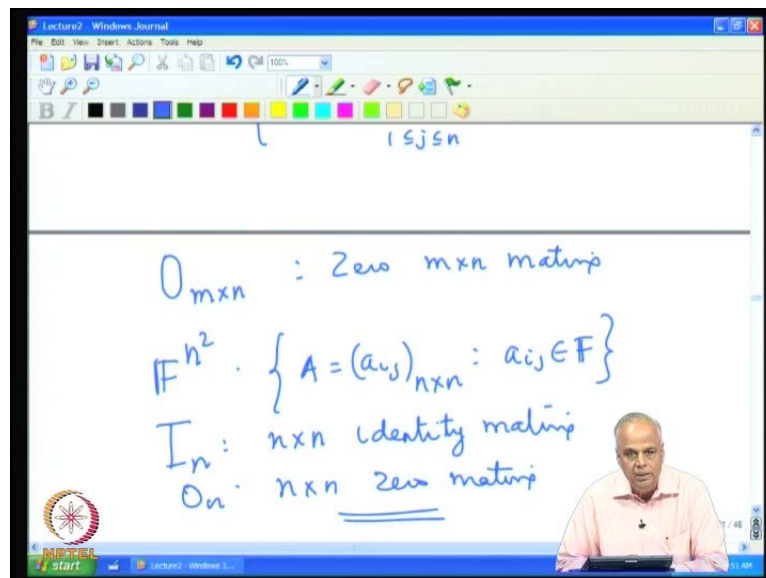 Lecture2 - Windows Journal
File Edit View Insert Actions Tools Help
100%
B I
1≤j≤n
O_{m×n} : Zero m×n matrix
𝔽^{n²} . { A = (a_{ij})_{n×n} : a_{ij} ∈ 𝔽 }
I_n : n×n identity matrix
O_n . n×n zero matrix
/ 46
NPTEL
start Lecture2 - Windows J...
51 AM